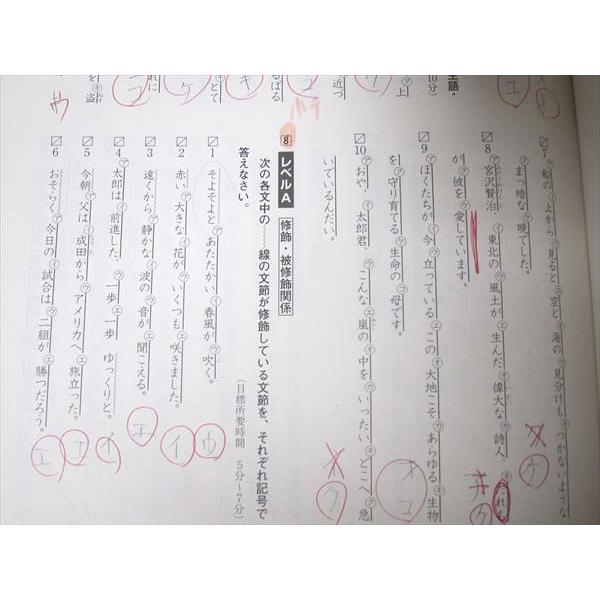 主語・
10分)
㋗上
近つ
るばる
とて
れに
を㋖盗
7 ㋐船の㋑上から㋒見ると㋓空と㋔海の㋕見分けも㋖つかないような
㋗まっ暗な㋘晩でした。
8 ㋐宮沢賢治㋑東北の㋒風土が㋓生んだ㋔偉大な㋕詩人
が㋗彼を㋘愛しています。
9 ㋐ぼくたちが㋑今㋒立っている㋓この㋔大地こそ㋕あらゆる㋖生物
を㋗守り育てる㋘生命の㋙母です。
10 ㋐おや、㋑太郎君、㋒こんな㋓嵐の㋔中を㋕いったい㋖どこへ㋗急
いでいるんだい。
8 レベルA 修飾・被修飾関係
次の各文中の――線の文節が修飾している文節を、それぞれ記号で
答えなさい。
(目標所要時間 5分〜7分)
1 そよそよと㋐あたたかい㋑春風が㋒吹く。
ウ
2 赤い㋐大きな㋑花が㋒いくつも㋓咲きました。
イ
3 遠くから㋐静かな㋑波の㋒音が㋓聞こえる。
エ
4 ㋐太郎は㋑前進した、㋒一歩㋓一歩 ゆっくりと。
イ
5 今朝㋐父は㋑成田から㋒アメリカへ㋓旅立った。
エ
6 おそらく㋐今日の㋑試合は㋒二組が㋓勝つだろう。
エ